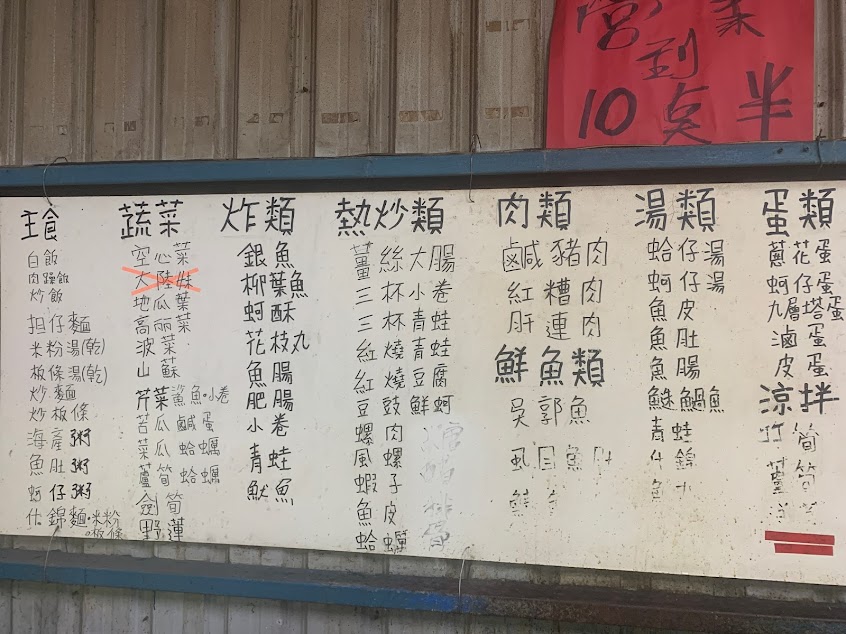 營業
到
10点半
主食
白飯
肉臊飯
炒飯
担仔麵
米粉湯(乾)
板條湯(乾)
炒麵
炒板條
海產粥
魚肚粥
蚵仔粥
什錦麵•米粉
•板條
蔬菜
空心菜
大陸妹
地瓜葉
高丽菜
波菜
山蘇
芹菜鯊魚•小卷
苦瓜鹹蛋
菜瓜蛤蠣
蘆筍蛤蠣
劍筍
野蓮
炸類
銀魚
柳葉魚
蚵酥
花枝丸
魚腸
肥腸
小卷
青蛙
魷魚
熱炒類
薑絲大腸
三杯小卷
三杯青蛙
紅燒青蛙
紅燒豆腐
豆豉鮮蚵
螺肉
風螺
蝦子
魚皮
蛤蠣
肉類
鹹豬肉
紅糟肉
肝連肉
鮮魚類
吳郭魚
虱目魚肚
湯類
蛤仔湯
蚵仔湯
魚皮
魚肚
魚腸
鰱鍋魚
青蛙
什錦
魚
蛋類
蔥花蛋
蚵仔蛋
九層塔蛋
滷蛋
皮蛋
涼拌
竹筍
蘆筍